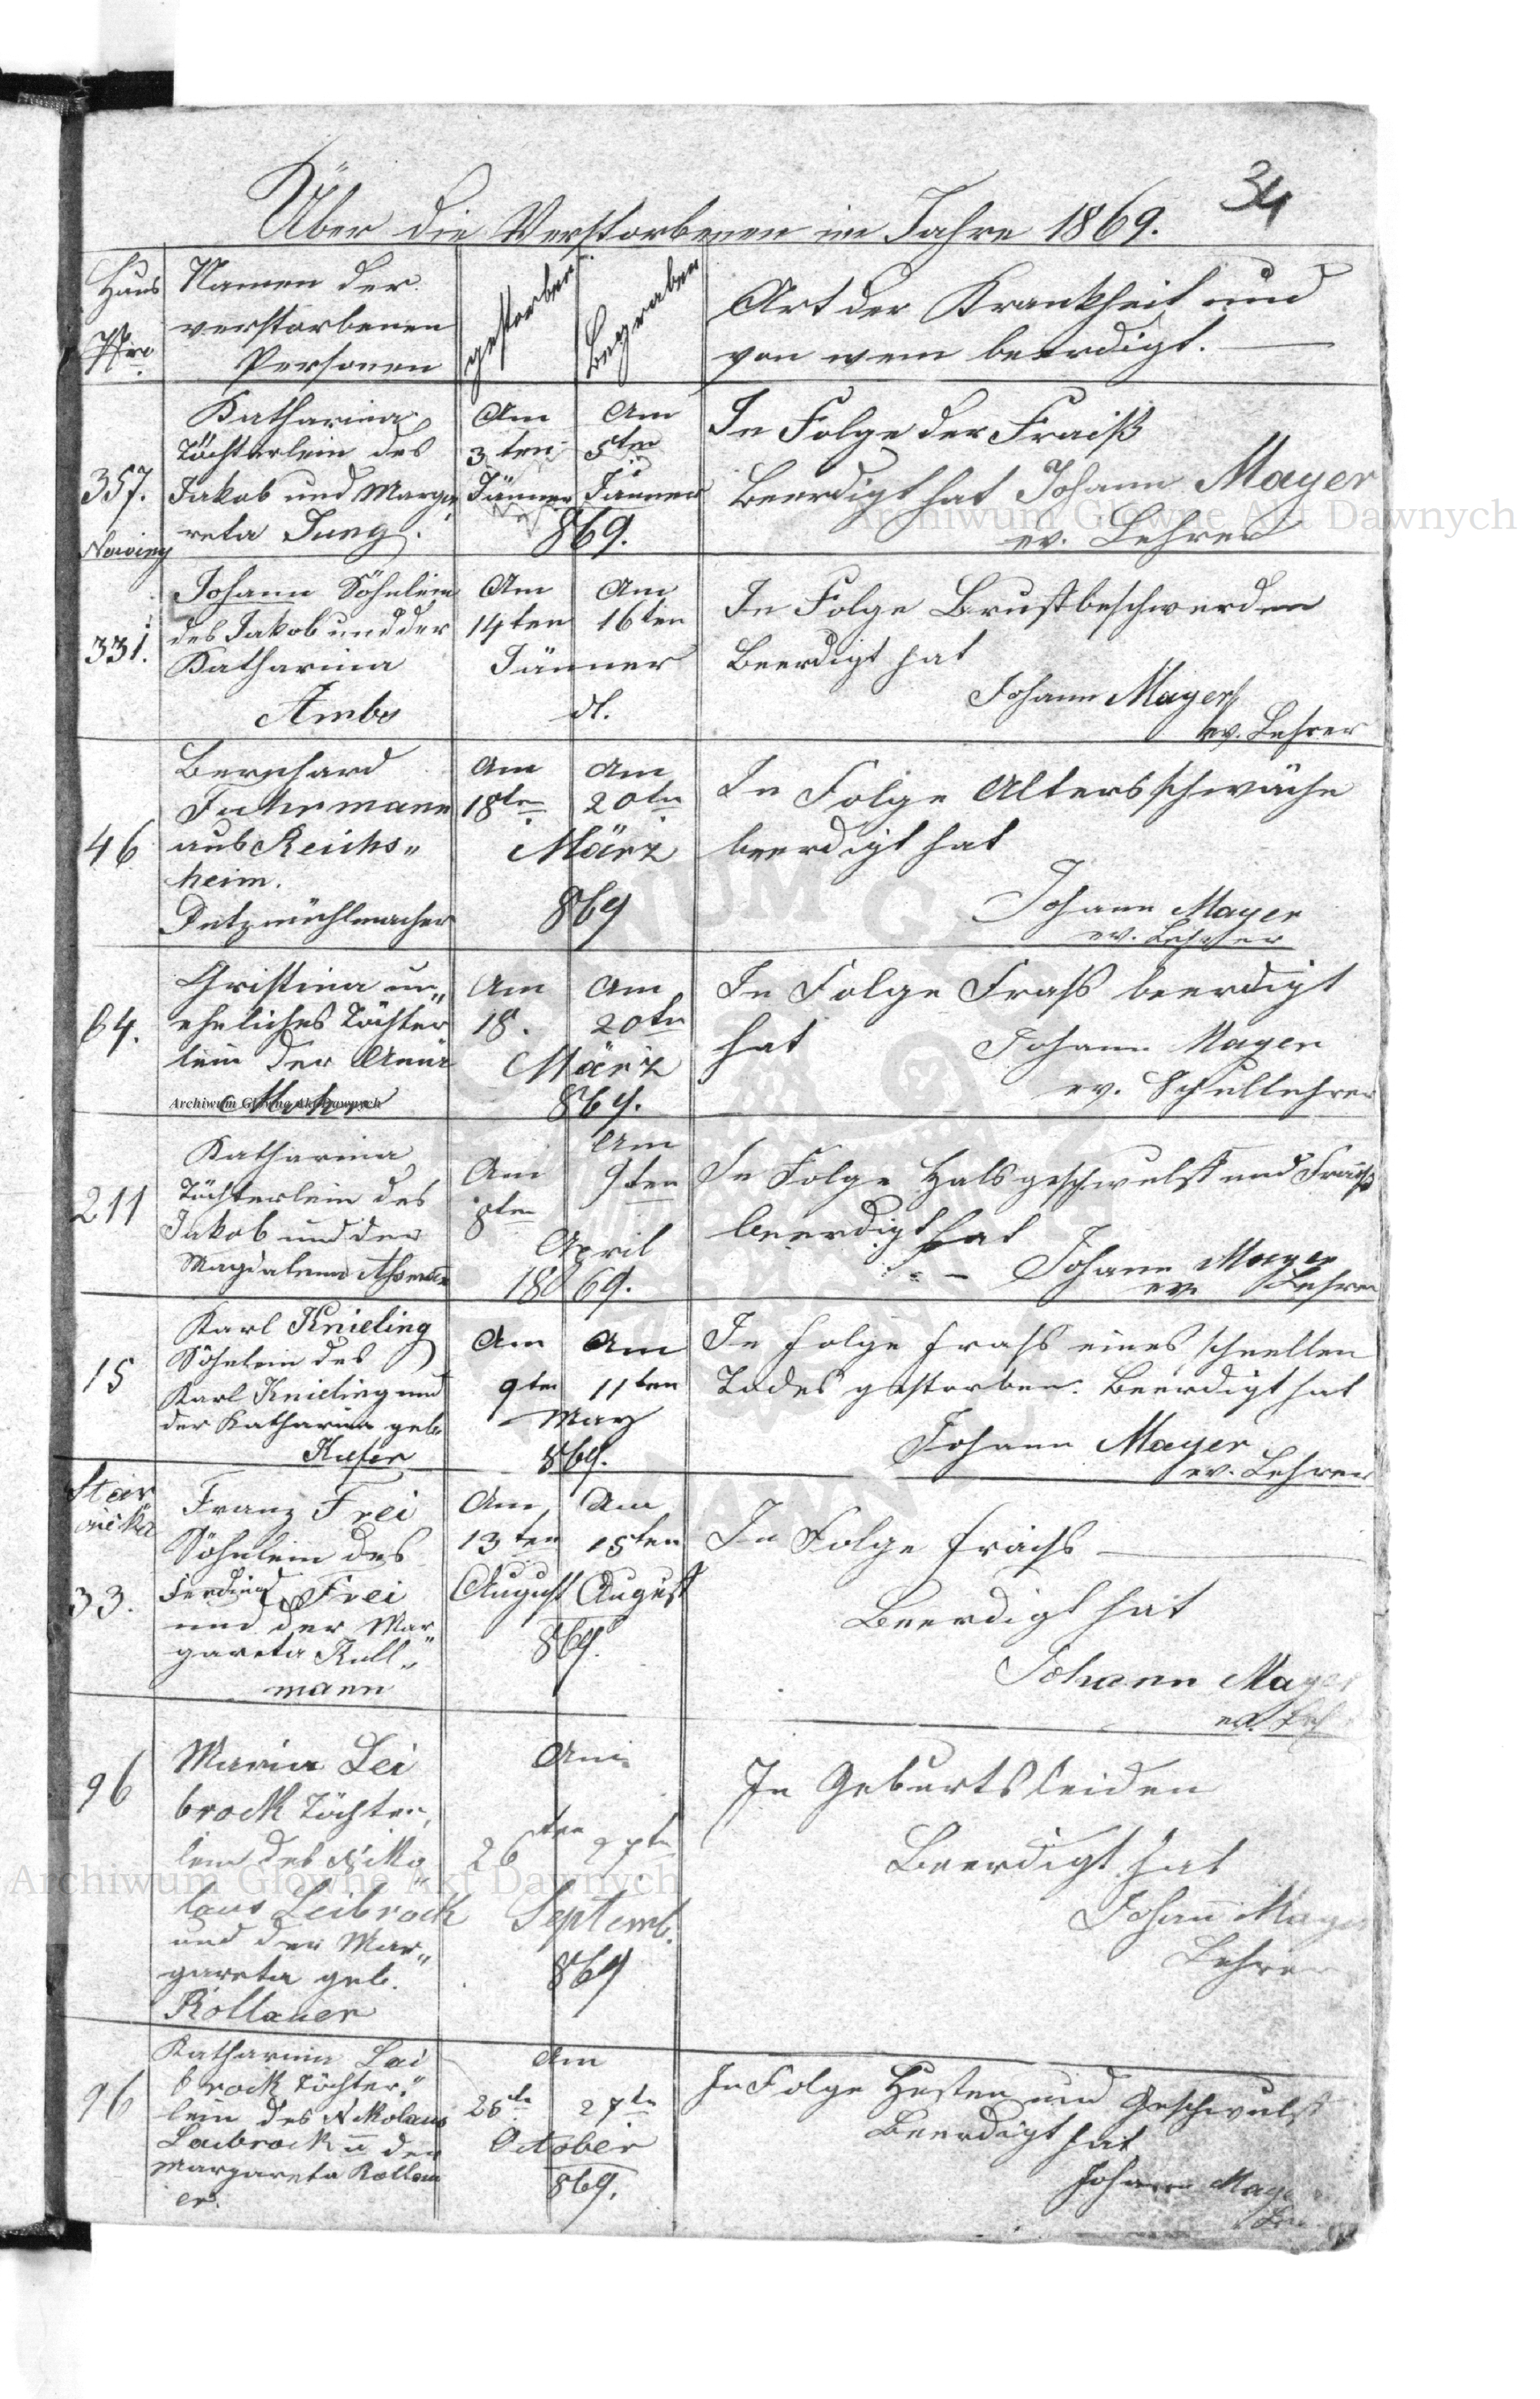 34
Über die Verstorbenen im Jahre 1869.
Haus Nro.
Namen der
verstorbenen
Personen
gestorben
Begraben
Art der Krankheit und
von wem beerdigt.
357.
Nowiny
Katharina
Töchterlein des
Jakob und Marga
reta Jung.
Am
3ten
Jänner
Am
5ten
Jänner
869.
In Folge der Fraiß
Beerdigt hat Johann Mayer
ev. Lehrer
331.
Johann Söhnlein
des Jakob und der
Katharina
Ambos
Am
14ten
Am
16ten
Jänner
In Folge Brustbeschwerden
Beerdigt hat
Johann Mayer
ev. Lehrer
46
Bernhard
Fuhrmann
aus Reichs„
heim.
Putzmühlmacher
Am
18ten
Am
20ten
März
869
In Folge Altersschwäche
beerdigt hat
Johann Mayer
ev. Lehrer
64.
Christina un„
eheliches Töchter
lein der Anna
Am
18.
Am
20ten
März
869.
In Folge Frass beerdigt
hat Johann Mayer
ev. Schullehrer
211
Katharina
Töchterlein des
Jakob und der
Magdalena
Am
8ten
Am
9ten
April
1869.
In Folge Halsgeschwulst und Fraiß
beerdigt hat
Johann Mayer
ev. Lehrer
15
Karl Knieling
Söhnlein des
Karl Knieling und
der Katharina geb.
Kufer
Am
9ten
Am
11ten
May
869.
In Folge frass eines schnellen
Todes gestorben. Beerdigt hat
Johann Mayer
ev. Lehrer
33.
Franz Frei
Söhnlein des
Ferdinad Frei
und der Mar
gareta Kull„
mann
Am
13ten
August
Am
15ten
August
869.
In Folge fraiss
Beerdigt hat
Johann Mayer
96
Maria Lei
brock Töchter,
lein des Niko„
laus Leibrock
und der Mar„
gareta geb.
Kollauer
Am
26ten 27ten
Septemb.
869
In Geburtsleiden
Beerdigt hat
Johann Mayer
Lehrer
96
Katharina Lai
brock Töchter„
lein des Nikolaus
Laibrock u der
Margareta Kollau
er.
Am
25te 27te
October
869.
In Folge Husten und Geschwulst
Beerdigt hat
Johann Mayer
Archiwum Główne Akt Dawnych
Archiwum Główne Akt Dawnych
Archiwum Główne Akt Dawnych